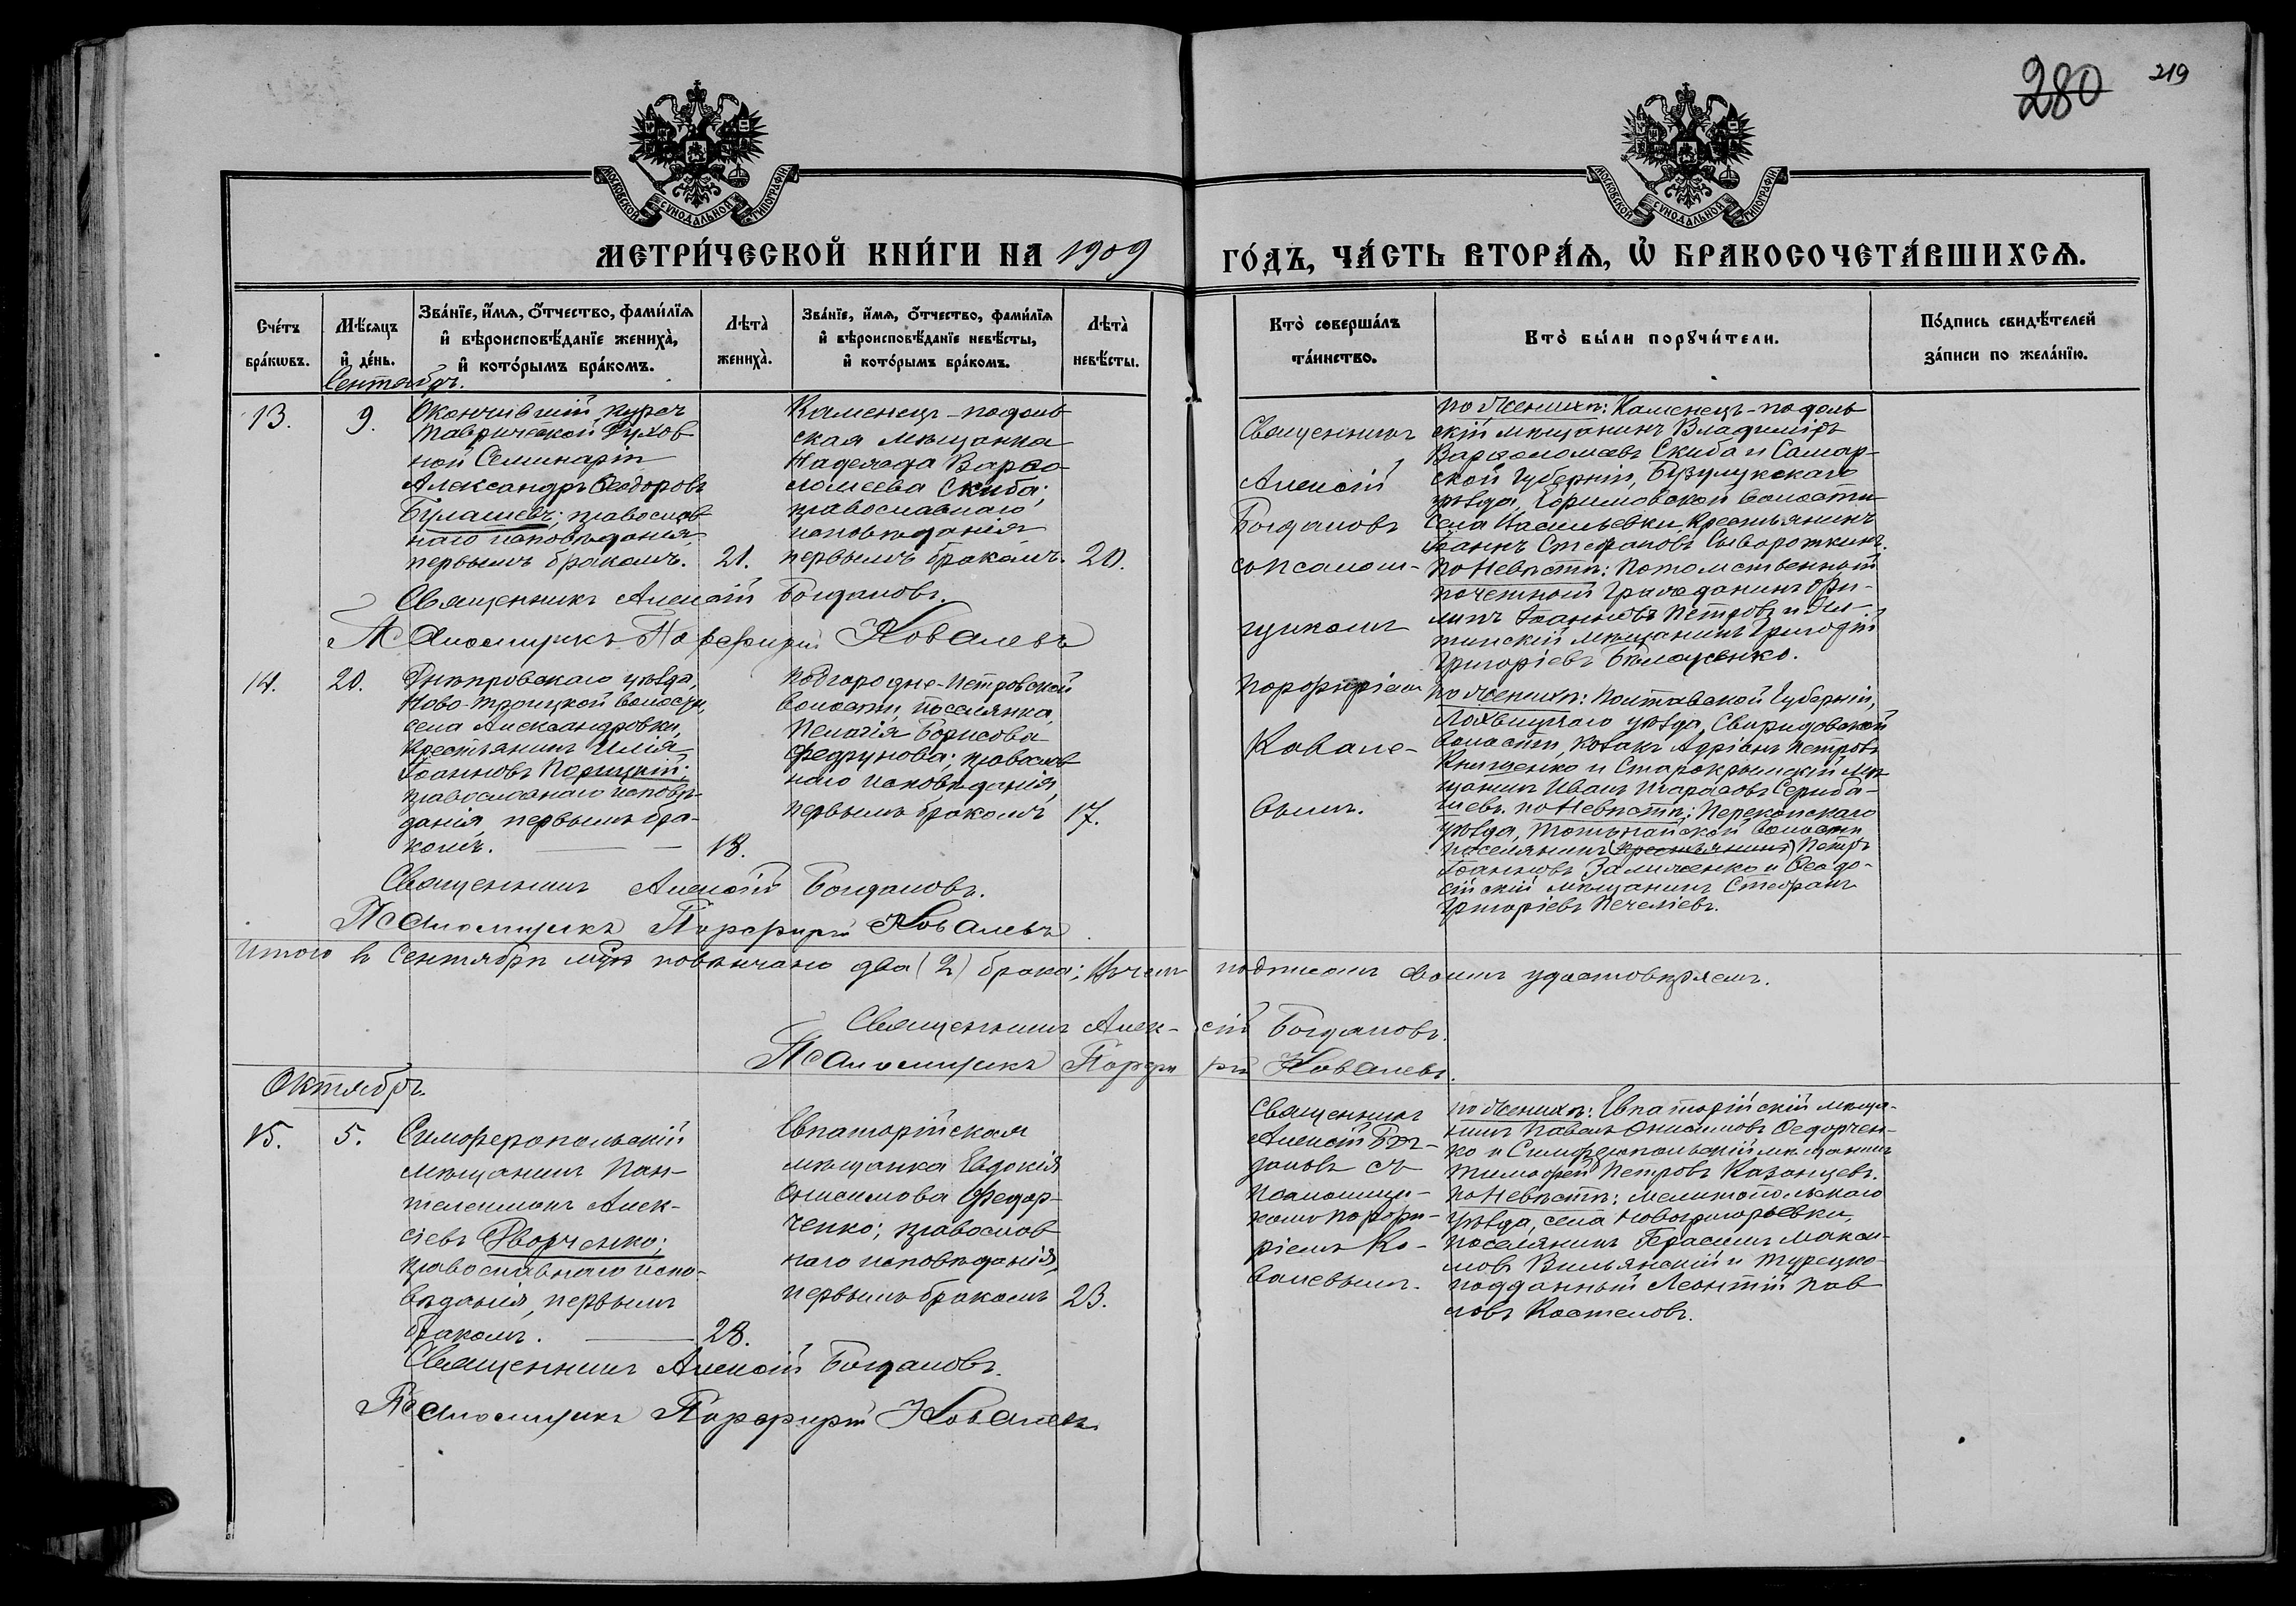 280 219
МОСКОВСКОЙ СѴНОДАЛЬНОЙ ТИПОГРАФІИ
МОСКОВСКОЙ СѴНОДАЛЬНОЙ ТИПОГРАФІИ
МЕТРИ́ЧЕСКОЙ КНИ́ГИ НА 1909
ГО́ДЪ, ЧА́СТЬ ВТОРА́Ѧ, Ѡ҆ БРАКОСОЧЕТА́ВШИХСѦ.
Сче́тъ
бра́кѡвъ.
Мѣ́сяцъ
и҆ де́нь.
Зва́нїе, и҆́мѧ, ѻ҆́тчество, фами́лїѧ
и҆ вѣроисповѣ́данїе жениха̀,
и҆ кото́рымъ бра́комъ.
Лѣта̀
жениха̀.
Зва́нїе, и҆́мѧ, ѻ҆́тчество, фами́лїѧ
и҆ вѣроисповѣ́данїе невѣ́сты,
и҆ кото́рымъ бра́комъ.
Лѣта̀
невѣ́сты.
Кто̀ соверша́лъ
та́инство.
Кто̀ бы́ли порꙋчи́тели.
По́дпись свидѣ́телей
за́писи по жела́нїю.
Сентябрь.
13.
9.
Окончившій курсъ
Таврической Духов
ной Семинаріи
Александръ Ѳеодоровъ
Булашевъ; православ
наго исповѣданія,
первымъ бракомъ.
21.
Каменецъ-подоль
ская мѣщанка
Надежда Варѳо
ломеева Скиба;
православнаго
исповѣданія
первымъ бракомъ.
20.
Священникъ Алексій Богдановъ.
Псаломщикъ Порфирій Ковалевъ
Священникъ
Алексій
Богдановъ
съ псалом-
щикомъ
Порфиріемъ
Ковале-
вымъ.
по женихѣ: Каменецъ-подоль
скій мѣщанинъ Владиміръ
Варѳоломеевъ Скиба и Самар-
ской губерніи, Бузулукскаго
уѣзда, Ефимовской волости
села Васильевки крестьянинъ
Іоаннъ Стефановъ Сывороткинъ.
по Невѣстѣ: Потомственный
почетный гражданинъ Фи-
липъ Іоанновъ Петровъ и
мѣщанинъ Григорій
Григорьевъ Бѣлащенко.
14.
20.
Днѣпровскаго уѣзда,
Ново-Троицкой волости,
села Александровки,
крестьянинъ Илія
Іоанновъ Порицкій;
православнаго исповѣ-
данія, первымъ бра-
комъ.
18.
Подгородне-Петровской
волости, поселянка,
Пелагія Борисова
Федрунова; православ
наго исповѣданія,
первымъ бракомъ
17.
Священникъ Алексій Богдановъ.
Псаломщикъ Порфирій Ковалевъ
по женихѣ: Полтавской губерніи,
Лохвицкаго уѣзда, Свиридовской
волости, козакъ Адріанъ Петровъ
Книшенко и Старокрымскій мѣ
щанинъ Иванъ Тарасовъ Сериба-
шевъ. по Невѣстѣ: Перекопскаго
уѣзда, волости
поселянинъ (крестьянинъ) Петръ
Іоанновъ Залиженко и Ѳеодо-
сійскій мѣщанинъ Стефанъ
Григоріевъ Печеліевъ.
Итого въ Сентябрѣ мцѣ повѣнчано два (2) брака; въ чемъ подписомъ своимъ удостовѣряемъ.
Священникъ Алек-сій Богдановъ.
Псаломщикъ Порфирій Ковалевъ.
Октябрь
15.
5.
Симферопольскій
мѣщанинъ Пан-
телеимонъ Алек-
сіевъ Яворченко;
православнаго испо-
вѣданія, первымъ
бракомъ.
28.
Евпаторійская
мѣщанка Евдокія
Онисимова Федор-
ченко; православ
наго исповѣданія,
первымъ бракомъ
23.
Священникъ Алексій Богдановъ.
Псаломщикъ Порфирій Ковалевъ
Священникъ
Алексій Бог-
дановъ съ
псаломщи-
комъ Порфи-
ріемъ Ко-
валевымъ.
по женихѣ: Евпаторійскій мѣща-
нинъ Павелъ Онисимовъ Ѳедорчен-
ко и Симферопольскій мѣщанинъ
Тимофей Петровъ Казанцевъ.
по Невѣстѣ: Мелитопольскаго
уѣзда, села Новогригорьевки,
поселянинъ Герасимъ Макси-
мовъ Вильянскій и Турецко-
подданный Леонтій Пав
ловъ Костеловъ.